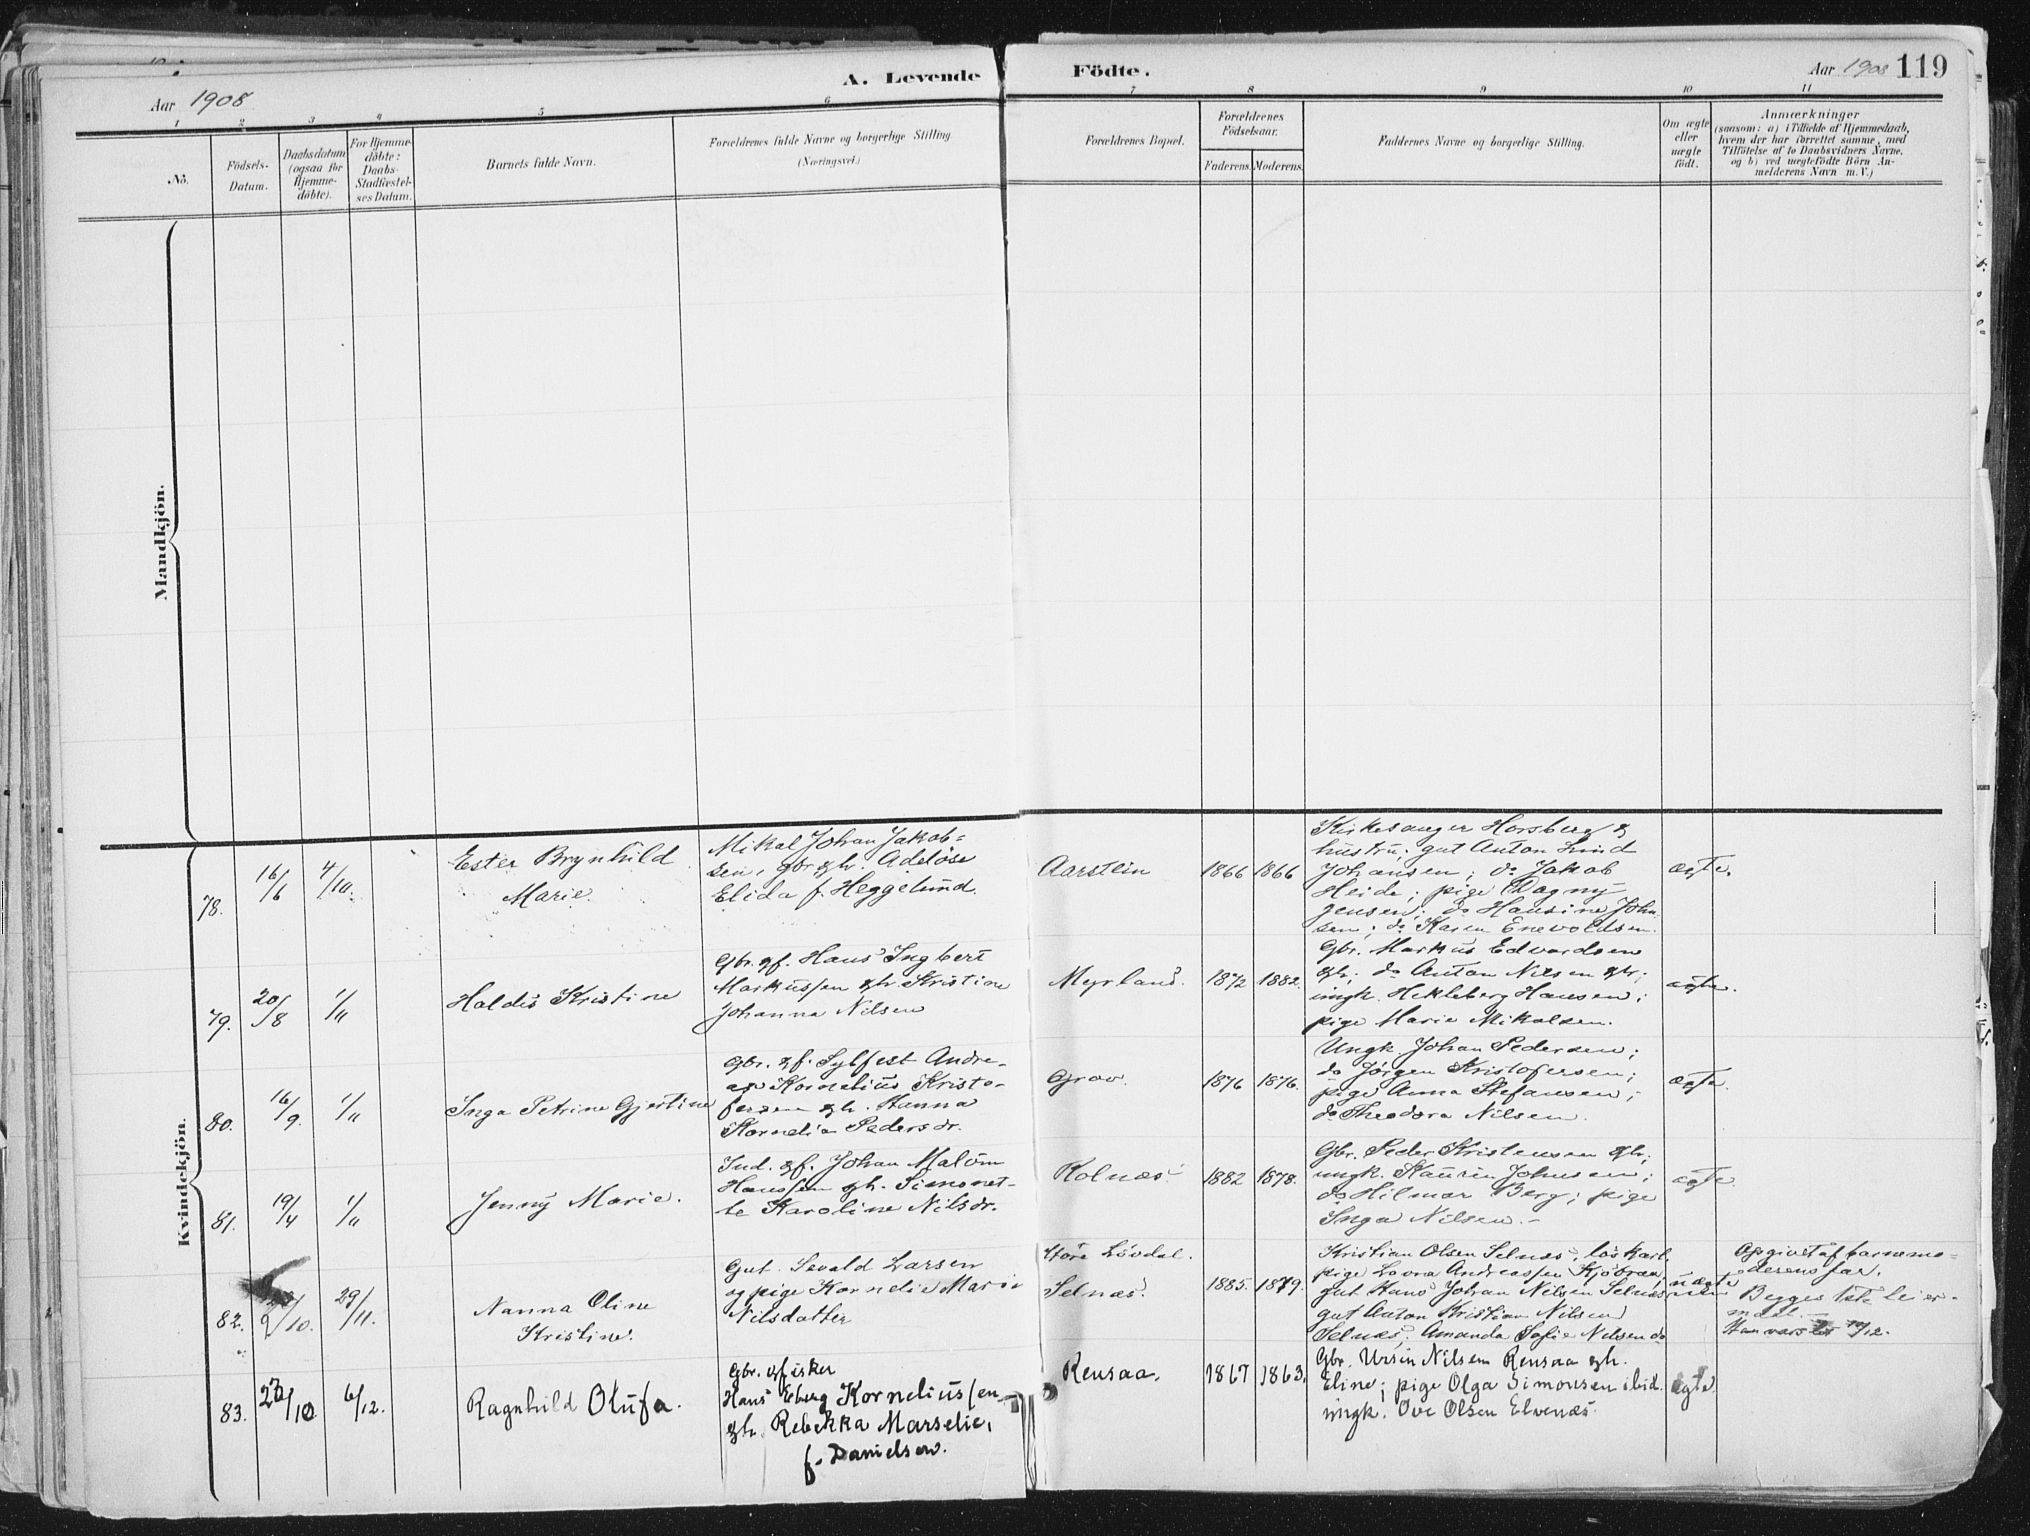 A. Levende Födte.
Aar 1908
Aar 1908 119
1 2 3 4 5 6 7 8 9 10 11
No.
Födsels-
Datum.
Daabsdatum
(ogsaa for
Hjemme-
døbte).
For Hjemme-
døbte:
Daabs-
Stadfæstel-
ses Datum.
Barnets fulde Navn.
Forældrenes fulde Navne og borgerlige Stilling
(Næringsvei.)
Forældrenes Bopæl.
Forældrenes
Födselsaar.
Faderens. Moderens.
Faddernes Navne og borgerlige Stilling.
Om ægte
eller
uægte
födt.
Anmærkninger
(saasom: a) i Tilfælde af Hjemmedaab,
hvem der har forrettet samme, med
Tilføielse af to Daabsvidners Navne.
og b) ved uægtefödte Börn An-
melderens Navn m. V.)
Mandkjön.
Kvindekjön.
78.
16/6
4/10.
Ester Brynhild
Marie.
Mikal Johan Jakob-
sen, gbr. & h. Adelöse
Elida f. Heggelund.
Aarstein
1866 1866
Kirkesanger Horsberg &
hustru; gut Anton Lind
Johansen; do Jakob
Heide; pige Dagny
Jensen; do Hansine John-
sen; do Karen Enevoldsen.
ægte.
79.
20/8
1/11
Haldis Kristine
Gbr. & f. Hans Ingbert
Markussen & h. Kristine
Johanna Nilsen
Myrland.
1872 1882.
Gbr. Markus Edvardsen
& h; do Anton Nilsen & h;
ungk. Hekleberg Hansen;
pige Marie Mikalsen.
ægte.
80.
16/9.
1/11
Inga Petrine Gjertine
Gbr. & f. Sylfest Andre-
as Kornelius Kristo-
fersen & h. Hanna
Kornelia Pedersdr.
Grov.
1876 1876.
Ungk. Johan Pedersen;
do Jörgen Kristofersen;
pige Anna Stefansen;
do Theodora Nilsen.
ægte.
81.
19/4
1/11
Jenny Marie.
Ind. & f. Johan Malöm
Hanssen & h. Simonet-
te Karoline Nilsdr.
Rolnæs
1882 1878.
Gbr. Peder Kristensen & h;
ungk. Johnsen;
do Hilmar Berg; pige
Inga Nilsen.-
ægte.
82.
/10.
29/11.
Nanna Oline
Kristine.
Gut. Sevald Larsen
og pige Kornelia Marie
Nilsdatter
Store Lövdal.
Selnæs.
1885. 1879.
Kristian Olsen Selnæs, löskarl.
pige Lovra Andreassen Kjöbraa;
gut Hans Johan Nilsen Selnæs
gut Anton Kristian Nilsen
Selnæs; Amanda Sofie Nilsen do
uægte
Opgivet af barnemo-
derens far.
Begges 1ste leier-
maal.
83.
/10.
6/12.
Ragnhild Olufa.
Gbr. & fisker
Hans Eberg Korneliussen
& h. Rebekka Marselie,
f. Danielsen.
Rensaa.
1867 1863.
Gbr. Ursin Nilsen Rensaa & h.
Eline; pige Olga Simonsen ibid.
ungk. Ove Olsen Elvenæs.
ægte